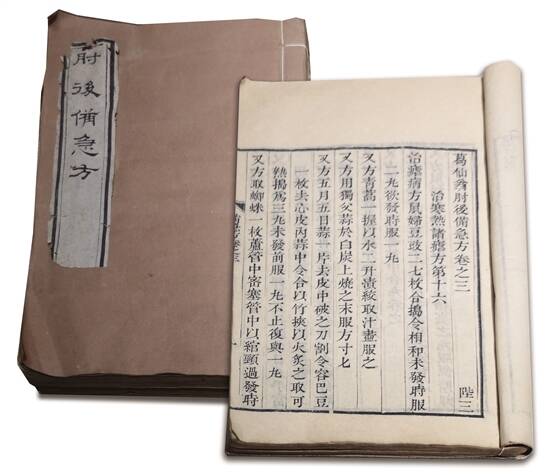 肘後備急方
葛仙翁肘後備急方卷之三
治寒熱諸瘧方第十六
治瘧病方鼠婦豆豉二七枚合搗令相和未發時服
二丸欲發時服一丸
又方青蒿一握以水二升漬絞取汁盡服之
又方用獨父蒜於白炭上燒之末服方寸匕
又方五月五日蒜一片去皮中破之刀割令容巴豆
一枚去心皮內蒜中令合以竹挾以火炙之取可
熱搗爲三丸未發前服一丸不止復與一丸
又方取蜘蛛一枚蘆管中密塞管中以綰頸過發時
陛三